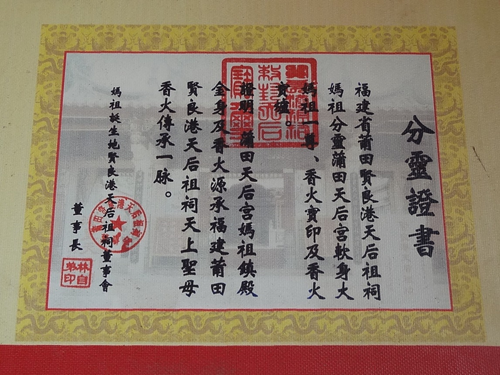 分靈證書
福建省莆田賢良港天后祖祠
媽祖分靈蒲田天后宮軟身大
媽祖一尊、香火寶印及香火
寶爐。
證明蒲田天后宮媽祖鎮殿
金身及香火源承福建莆田
賢良港天后祖祠天上聖母
香火傳承一脉。
媽祖誕生地賢良港天后祖祠董事會
董事長
林自弟印